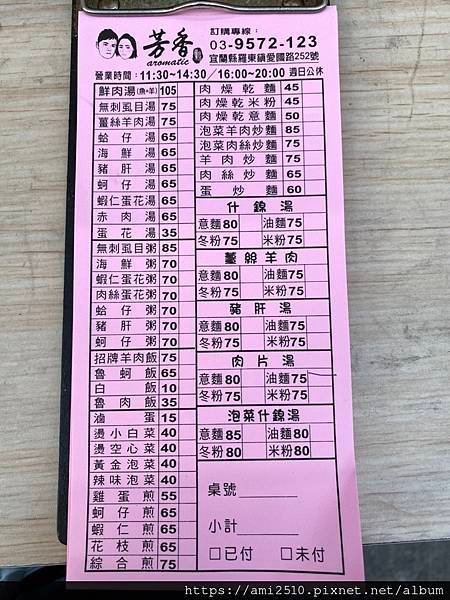 芳香
aromatic
訂購專線：
03-9572-123
宜蘭縣羅東鎮愛國路252號
營業時間：11:30~14:30／16:00~20:00 週日公休
鮮肉湯(魚+羊) 105
無刺虱目湯 75
薑絲羊肉湯 75
蛤仔湯 65
海鮮湯 65
豬肝湯 65
蚵仔湯 65
蝦仁蛋花湯 65
赤肉湯 65
蛋花湯 35
無刺虱目粥 85
海鮮粥 70
蝦仁蛋花粥 70
肉絲蛋花粥 70
蛤仔粥 70
豬肝粥 70
蚵仔粥 70
招牌羊肉飯 75
魯蚵飯 65
白飯 10
魯肉飯 35
滷蛋 15
燙小白菜 40
燙空心菜 40
黃金泡菜 40
辣味泡菜 40
雞蛋煎 55
蚵仔煎 65
蝦仁煎 65
花枝煎 65
綜合煎 75
肉燥乾麵 45
肉燥乾米粉 45
肉燥乾意麵 50
泡菜羊肉炒麵 85
泡菜肉絲炒麵 75
羊肉炒麵 75
肉絲炒麵 65
蛋炒麵 60
什錦湯
意麵80 油麵75
冬粉75 米粉75
薑絲羊肉
意麵80 油麵75
冬粉75 米粉75
豬肝湯
意麵80 油麵75
冬粉75 米粉75
肉片湯
意麵80 油麵75
冬粉75 米粉75
泡菜什錦湯
意麵85 油麵80
冬粉80 米粉80
桌號
小計
□已付 □未付
https://ami2510.pixnet.net/album